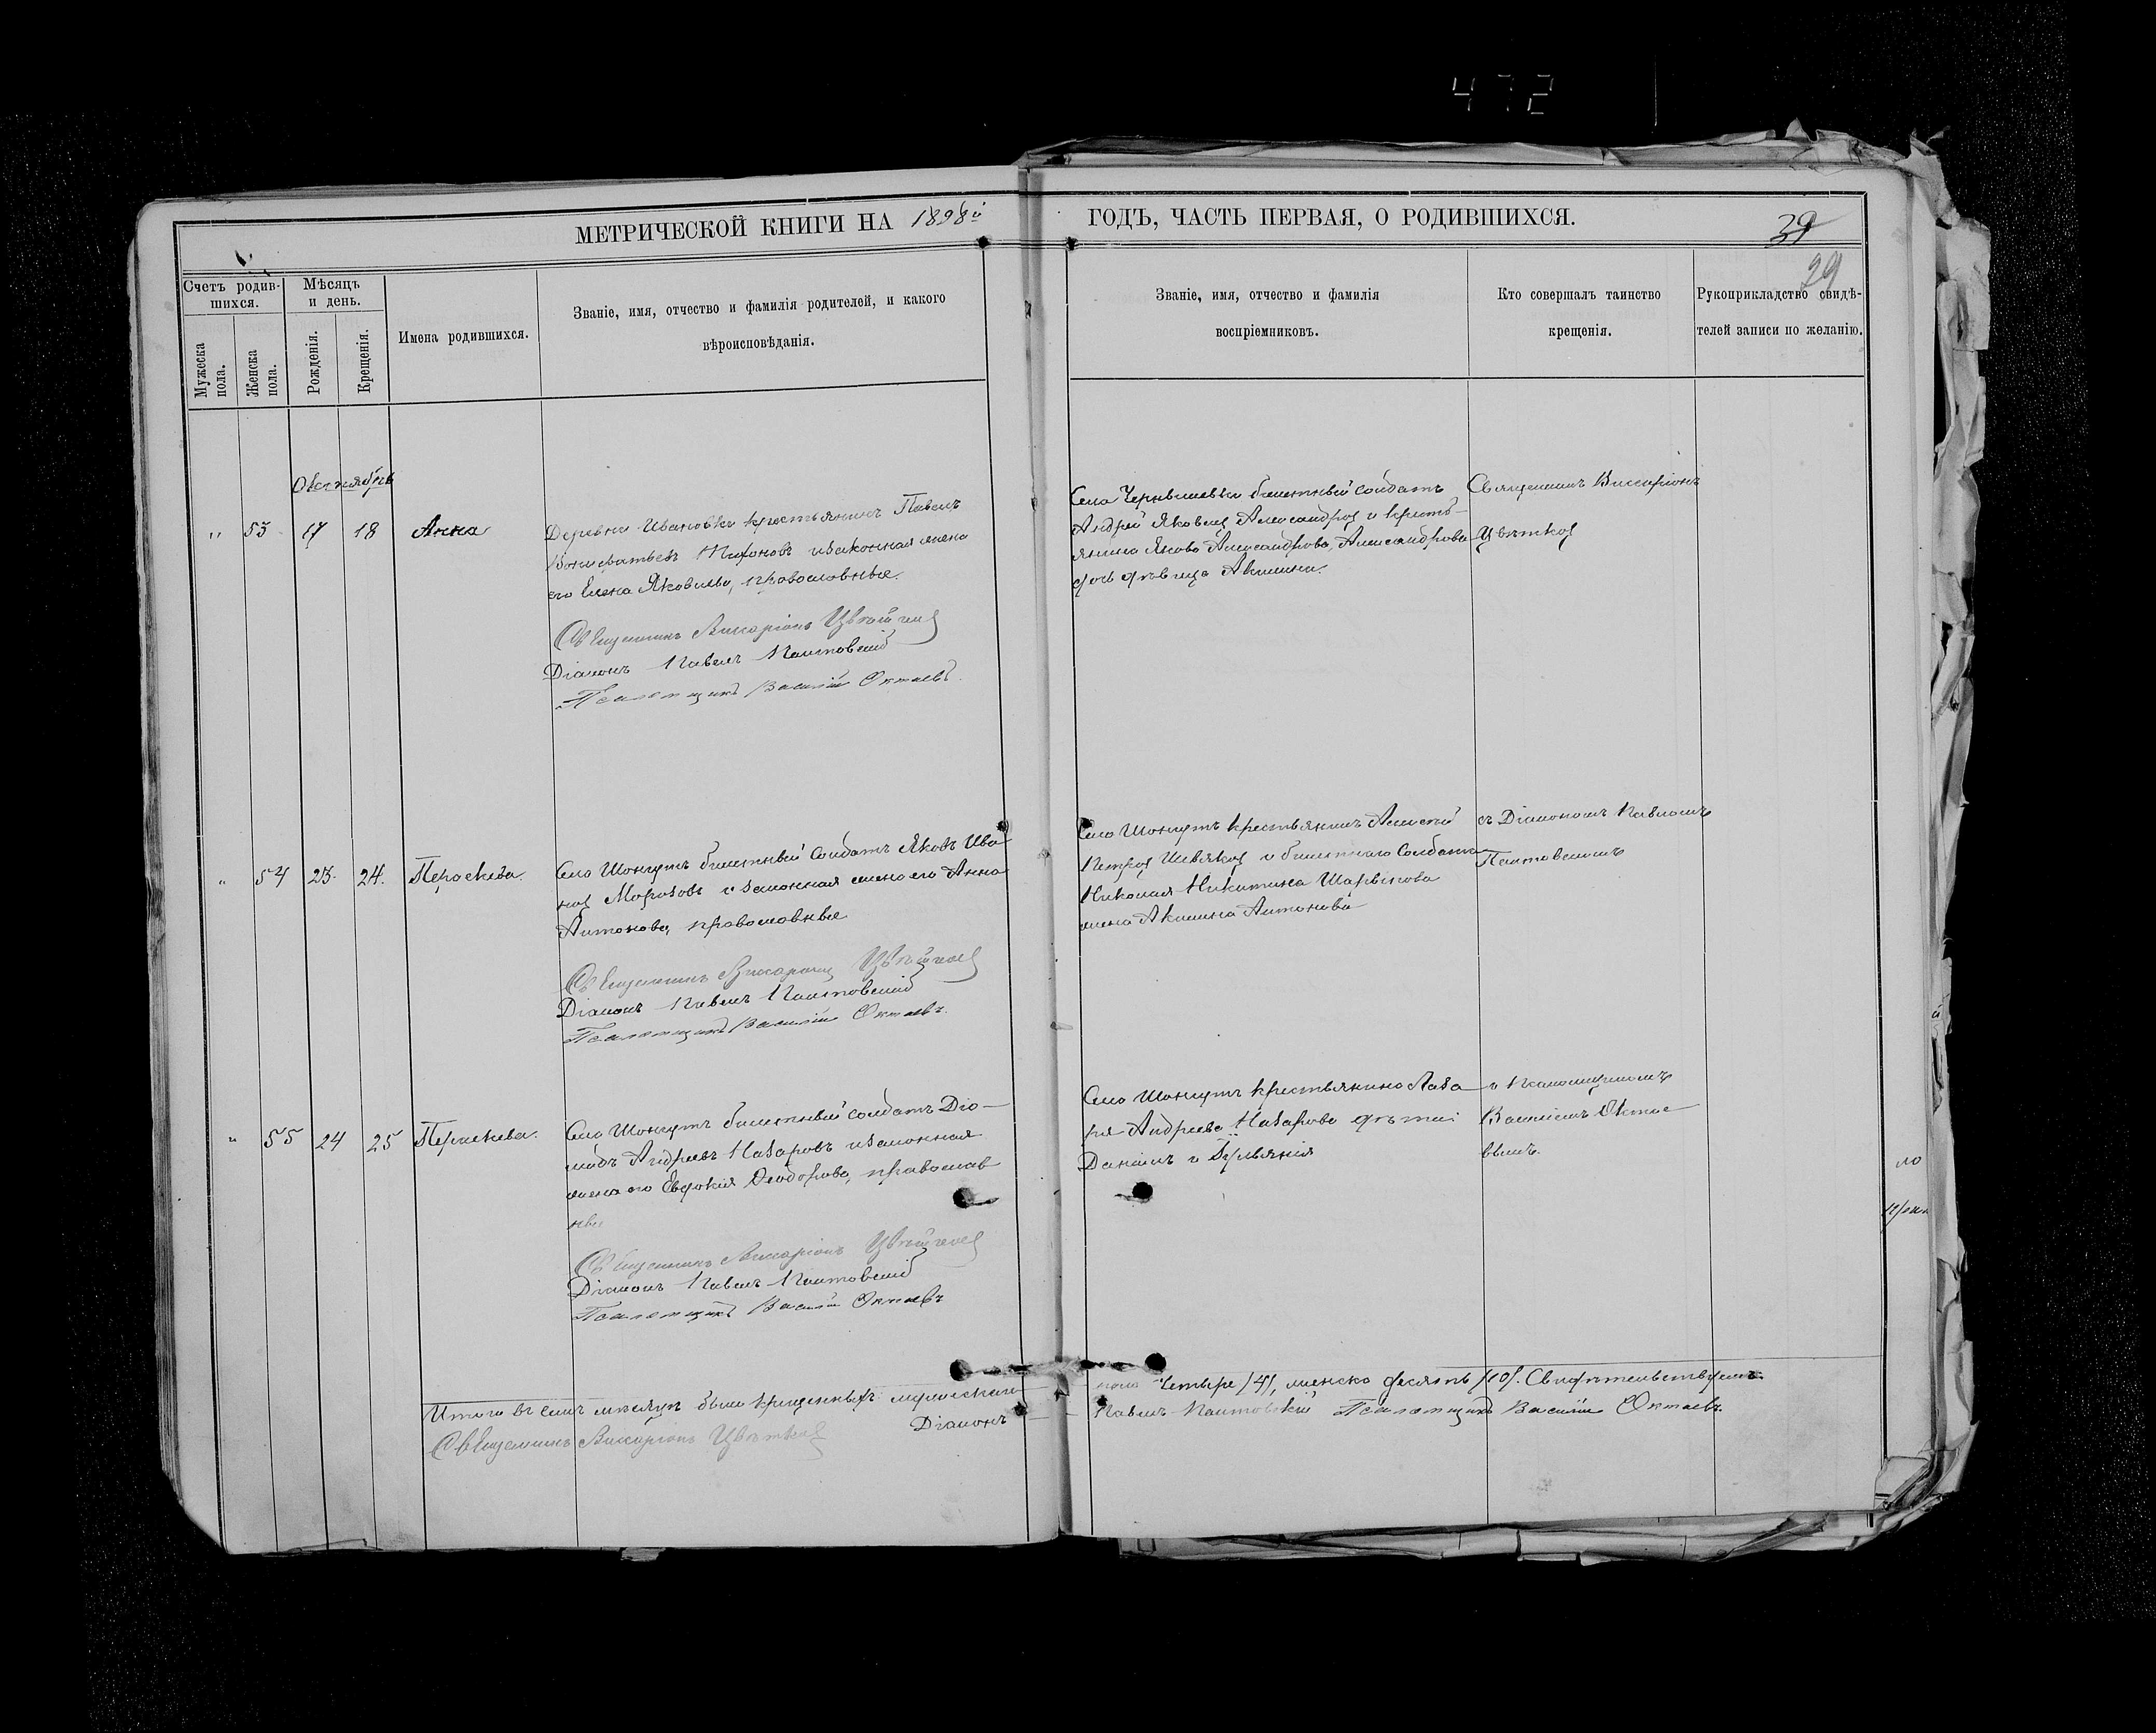 472
МЕТРИЧЕСКОЙ КНИГИ НА 1898й ГОДЪ, ЧАСТЬ ПЕРВАЯ, О РОДИВШИХСЯ.
39
29
Счетъ родив-
шихся.
Мужеска
пола.
Женска
пола.
Мѣсяцъ
и день.
Рожденія.
Крещенія.
Имена родившихся.
Званіе, имя, отчество и фамилія родителей, и какого
вѣроисповѣданія.
Званіе, имя, отчество и фамилія
воспріемниковъ.
Кто совершалъ таинство
крещенія.
Рукоприкладство свидѣ-
телей записи по желанію.
Октябрь
" 53 17 18 Анна
Деревни Ивановки крестьянинъ Павелъ
Вонифатьевъ Тихоновъ и законная жена
его Елена Яковлева, православные.
Священникъ Виссаріонъ Цвѣтков
Діаконъ Павелъ
Псаломщикъ Василій Октаевъ.
Села Чернышевки билетный солдатъ
Андрей Яковлев Александров и кресть-
янина Якова Александрова Александрова
дочь дѣвица Акилина.
Священникъ Виссаріонъ
Цвѣтков
" 54 23 24. Параскева.
Села Шонгутъ билетный солдатъ Яковъ Ива
нов Морозовъ и законная жена его Анна
Антонова, православные
Священникъ Виссаріонъ Цвѣтков
Діаконъ Павелъ
Псаломщикъ Василій Октаевъ.
Села Шонгутъ крестьянинъ Алексей
Петров Шевяков и билетнаго солдата
Николая Никитина
жена Акилина Антонова
съ Діакономъ Павломъ
" 55 24 25 Параскева.
Села Шонгутъ билетный солдатъ Діо-
мидъ Андреевъ Назаровъ и законная
жена его Евдокія Ѳеодорова, православ
ные
Священникъ Виссаріонъ Цвѣтков
Діаконъ Павелъ
Псаломщикъ Василій Октаевъ
Села Шонгутъ крестьянина Лаза
ря Андреева Назарова дѣти:
Даніилъ и
и Псаломщикомъ
Василіемъ Октае
вымъ.
Итого въ семъ мѣсяцѣ было крещенныхъ мужескаго
пола четыре /4/, женска десять /10/. Свидѣтельствуемъ:
Священникъ Виссаріонъ Цвѣтков Діаконъ
Павелъ Псаломщикъ Василій Октаевъ.